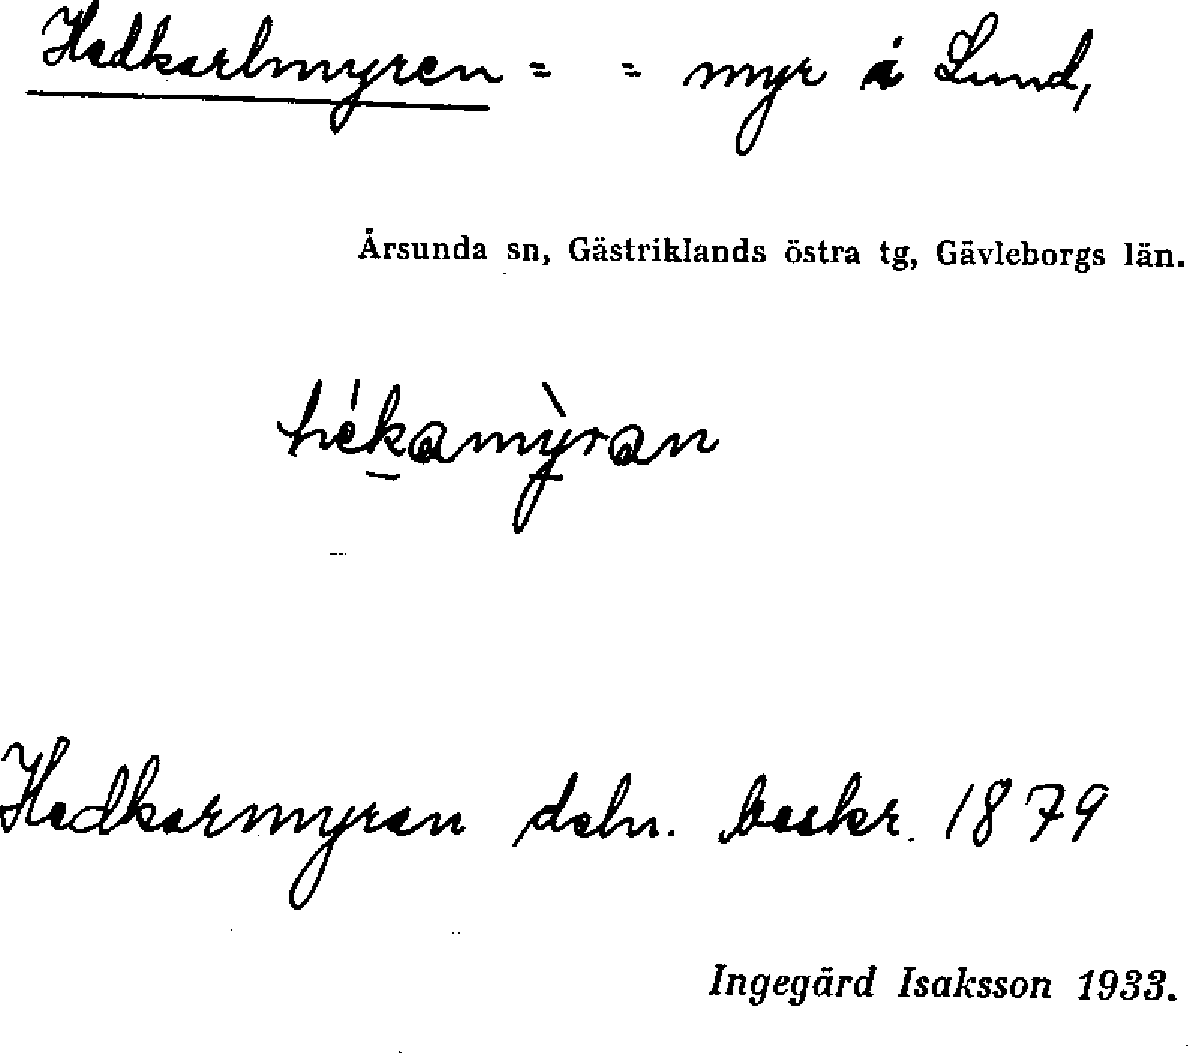 Hedkarlmyren = = myr å Lund,
Årsunda sn, Gästriklands östra tg, Gävleborgs län.
hékamỳran
Hedkarmyran beskr. 1879
Ingegärd Isaksson 1933.